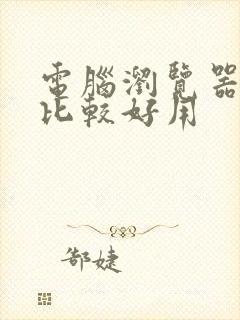 電腦瀏覽器
比較好用
郜婕